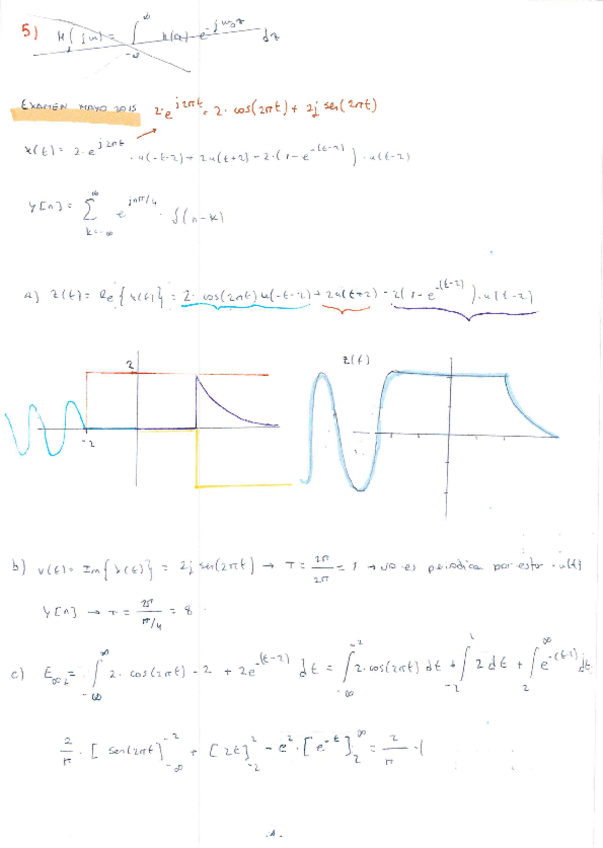 5) H(jω) = ∫_{-∞}^{∞} h(τ) e^{-jω₀τ} dτ
EXAMEN MAYO 2015 2·e^{j2πt} = 2·cos(2πt) + 2j sen(2πt)
x(t) = 2·e^{j2πt} · u(-t-2) + 2u(t+2) - 2·(1-e^{-(t-2)})·u(t-2)
y[n] = ∑_{k=-∞}^{∞} e^{jnπ/4} · δ(n-k)
a) z(t) = Re{x(t)} = 2·cos(2πt)u(-t-2) + 2u(t+2) - 2(1-e^{-(t-2)})·u(t-2)
2
-2
z(t)
b) v(t) = Im{x(t)} = 2j sen(2πt) → T = 2π/2π = 1 → no es periodica por estar · u(t)
y[n] → T = 2π/(π/4) = 8
c) E∞ = ∫_{-∞}^{∞} 2·cos(2πt) - 2 + 2e^{-(t-2)} dt = ∫_{-∞}^{-2} 2·cos(2πt) dt + ∫_{-2} 2 dt + ∫_{2}^{∞} e^{-(t-2)} dt
2/π · [sen(2πt)]_{-∞}^{-2} + [2t]_{-2}^{2} - e²·[e^{-t}]_{2}^{∞} = 2/π · (